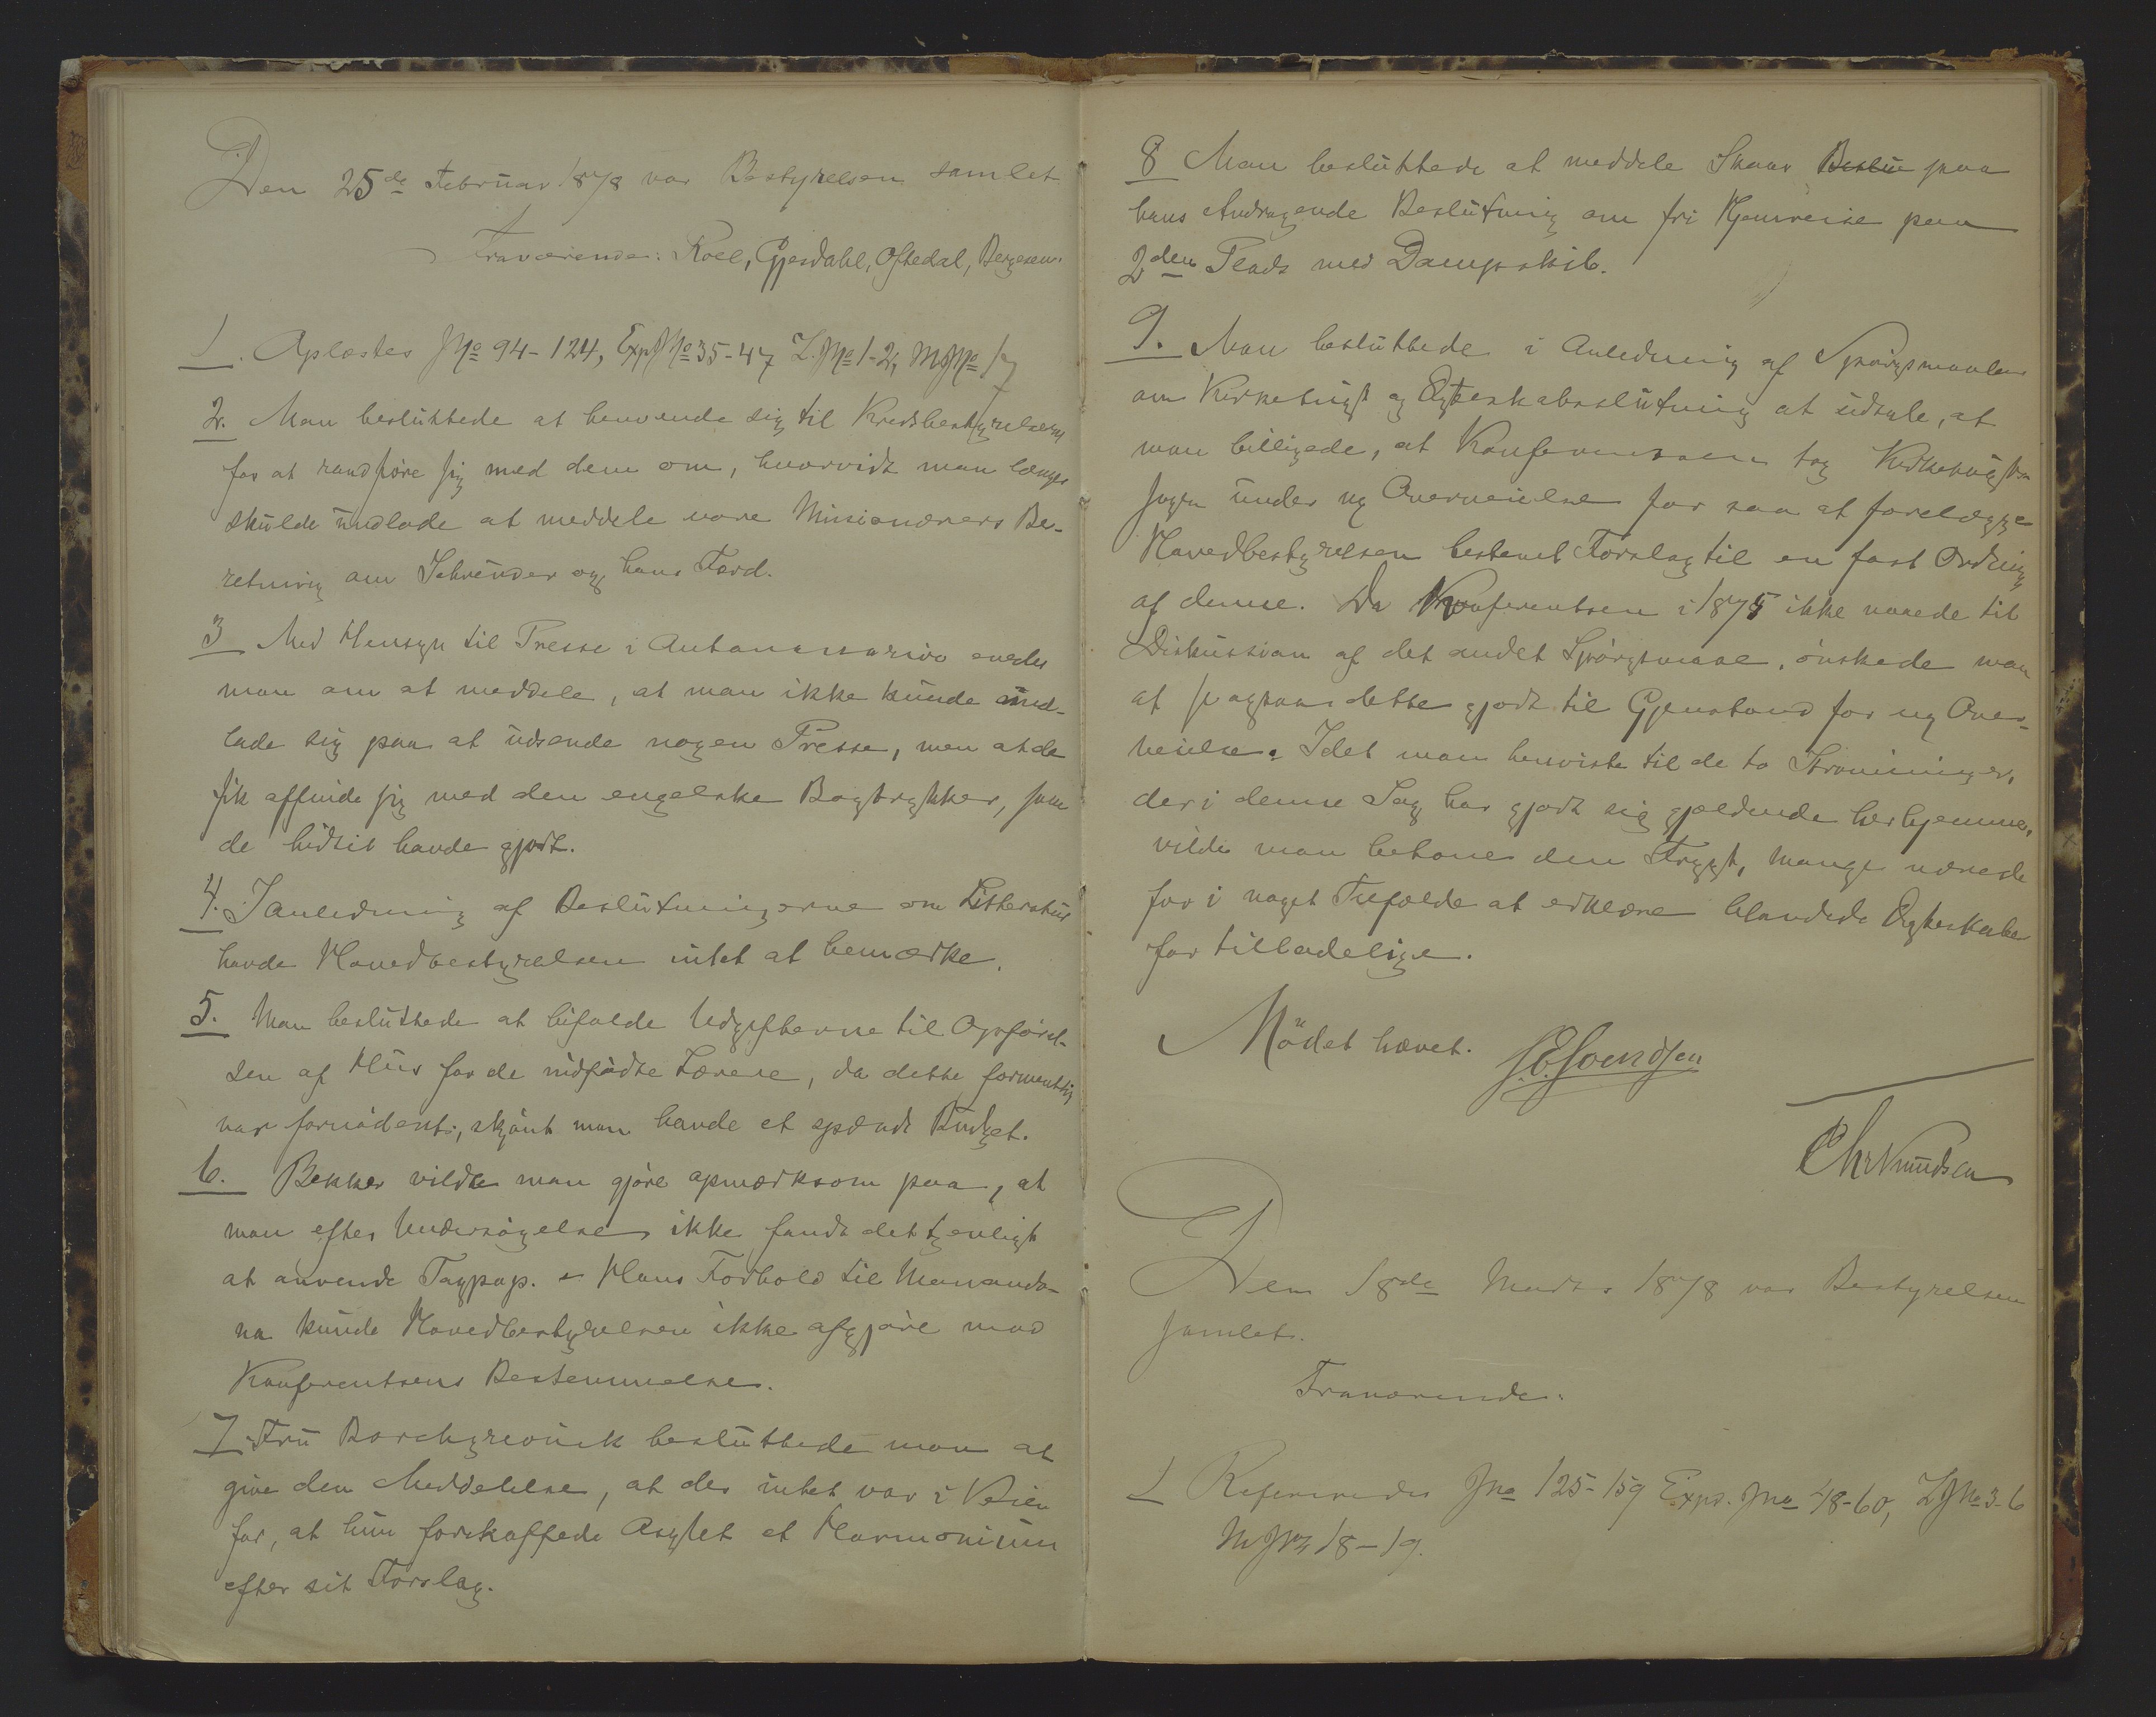 Den 25de Februar 1878 var Bestyrelsen samlet
Fraværende: Roll, Gjesdahl, Oftedal, Bergesen.
1. Oplæstes JNo 94-124, ExpJNo 35-47 L.JNo 1-2, MJNo 17
2. Man besluttede at henvende sig til Kredsbestyrelserne
for at raadføre sig med dem om, hvorvidt man længer
skulde undlade at meddele vore Missionærers Be-
retning om Schreuder og hans Færd.
3 Med Hensyn til Presse i Antananarivo enedes
man om at meddele, at man ikke kunde ind-
lade sig paa at udsende nogen Presse, men at de
fik affinde sig med den engelske Bogtrykker, som
de hidtil havde gjort.
4. I anledning af Beslutningerne om Litteratur
havde Hovedbestyrelsen intet at bemærke.
5. Man besluttede at bifalde Udgifterne til Opførel-
sen af Hus for de indfødte Lærere, da dette formentlig
var fornødent, skjønt man havde et spændt Budget.
6. Bekker vilde man gjøre opmærksom paa, at
man efter Undersøgelse ikke fandt det tjenligt
at anvende Tagpap. - Hans Forhold til Manando-
na kunde Hovedbestyrelsen ikke afgjøre mod
Konferentsens Bestemmelse.
7. Fru Borchgrevink besluttede man at
give den Meddelelse, at der intet var i Veien
for, at hun forskaffede Asylet et Harmonium
efter sit Forslag.
8 Man besluttede at meddele Skaar Beslu paa
hans Andragende Beslutning om fri Hjemreise paa
2den Plads med Dampskib.
9. Man besluttede i Anledning af Spørgsmaalene
om Kirketugt og Ægteskabsslutning at udtale, at
man billigede, at Konferentsen tog Kirketugts-
sagen under ny Overveielse for saa at forelægge
Hovedbestyrelsen bestemt Forslag til en fast Ordning
af denne. Da Konferentsen i 1875 ikke naaede til
Diskussion af det andet Spørgsmaal, ønskede man
at ogsaa dette gjort til Gjenstand for ny Over-
veielse. Idet man henviste til de to Strømninger,
der i denne Sag har gjort sig gjældende herhjemme,
vilde man betone den Frygt, mange nærede
for i noget Tilfælde at erklære blandede Ægteskaber
for tilladelige.
Mødet hævet. S.E. Svendsen
Chr Knudsen
Den 18de Marts 1878 var Bestyrelsen
samlet.
Fraværende:
1 Refereredes Jno 125-159 Exp. Jno 48-60, LJNo 3-6
MJNo 18-19.